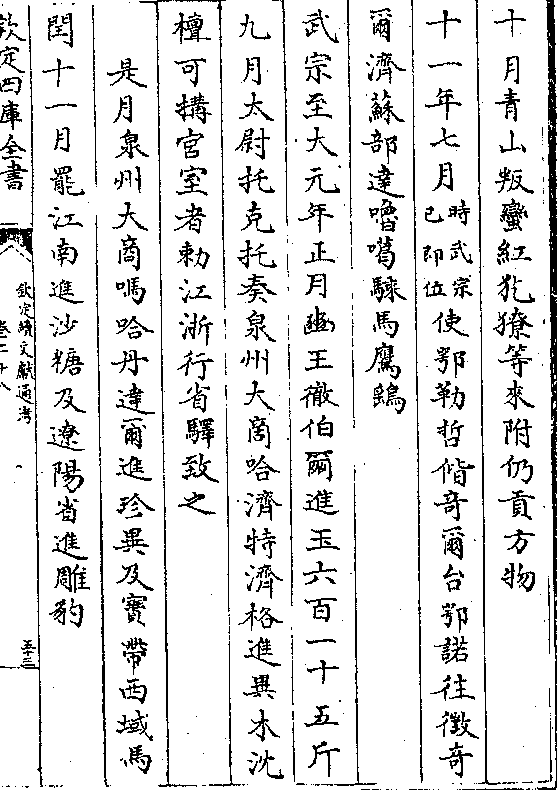 十月青山叛蠻紅犵獠等來附仍貢方物
十一年七月時武宗已即位使鄂勒哲偕奇爾台鄂諾往徵奇
爾濟蘇部達嚕噶騄馬鷹鷂
武宗至大元年正月豳王徹伯爾進玉六百一十五斤
九月太尉托克托奏泉州大商哈濟特濟格進異木沈
檀可搆宫室者勅江浙行省驛致之
是月泉州大商嗎哈丹達爾進珍異及寳帶西域馬
閏十一月罷江南進沙糖及遼陽省進雕豹
欽定四庫全書
欽定續文獻通考
卷二十八